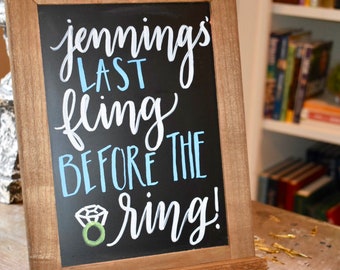 jennings'
LAST
fling
BEFORE THE
ring!